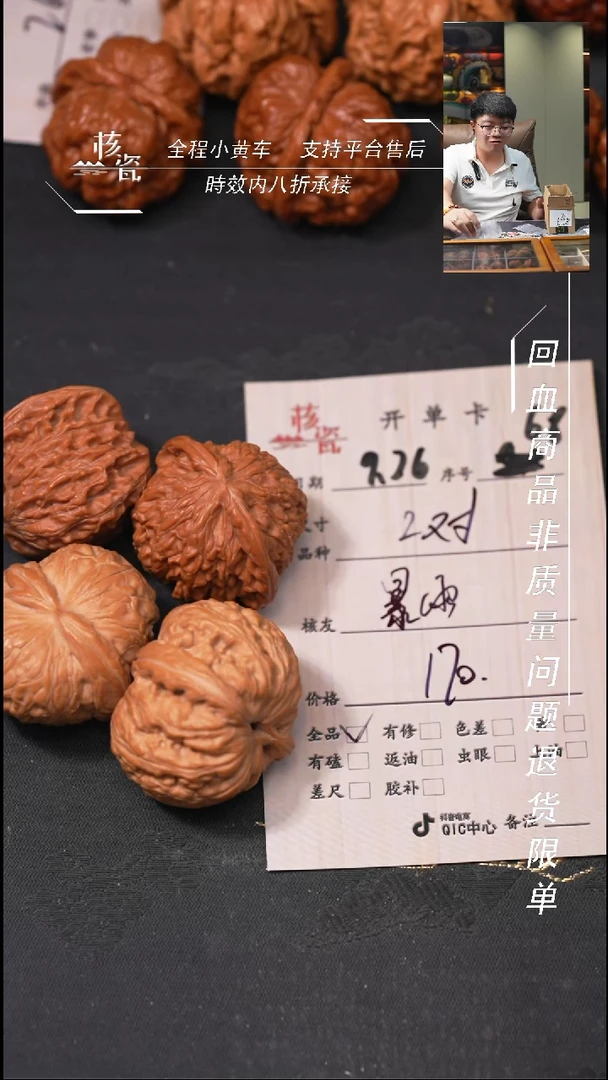 核瓷
全程小黄车 支持平台售后
時效内八折承接
回血商品非质量问题退货限单
核瓷
开单卡
日期 7.26 序号
尺寸
品种 2对
核友 暴雨
价格 170.
全品 有修 色差
有磕 返油 虫眼
差尺 胶补
抖音电商
QIC中心 备注